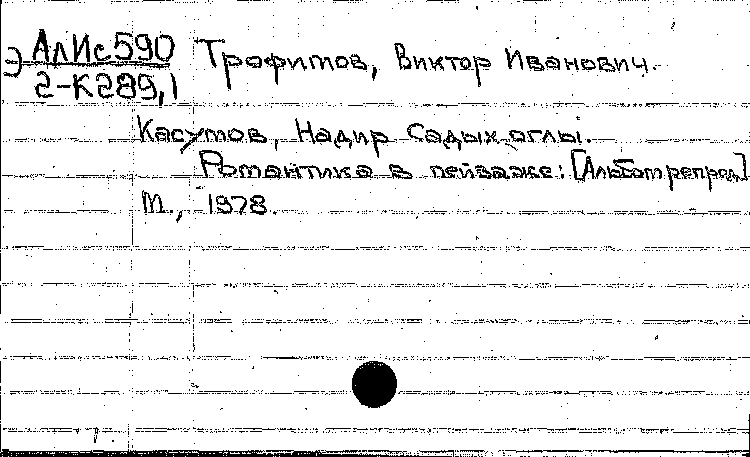 Э АлИс590 Трофимов, Виктор Иванович.
2-К289,1
Касумов, Надир Садых оглы.
Романтика в пейзаже: [Альбом репрод.]
М., 1978.